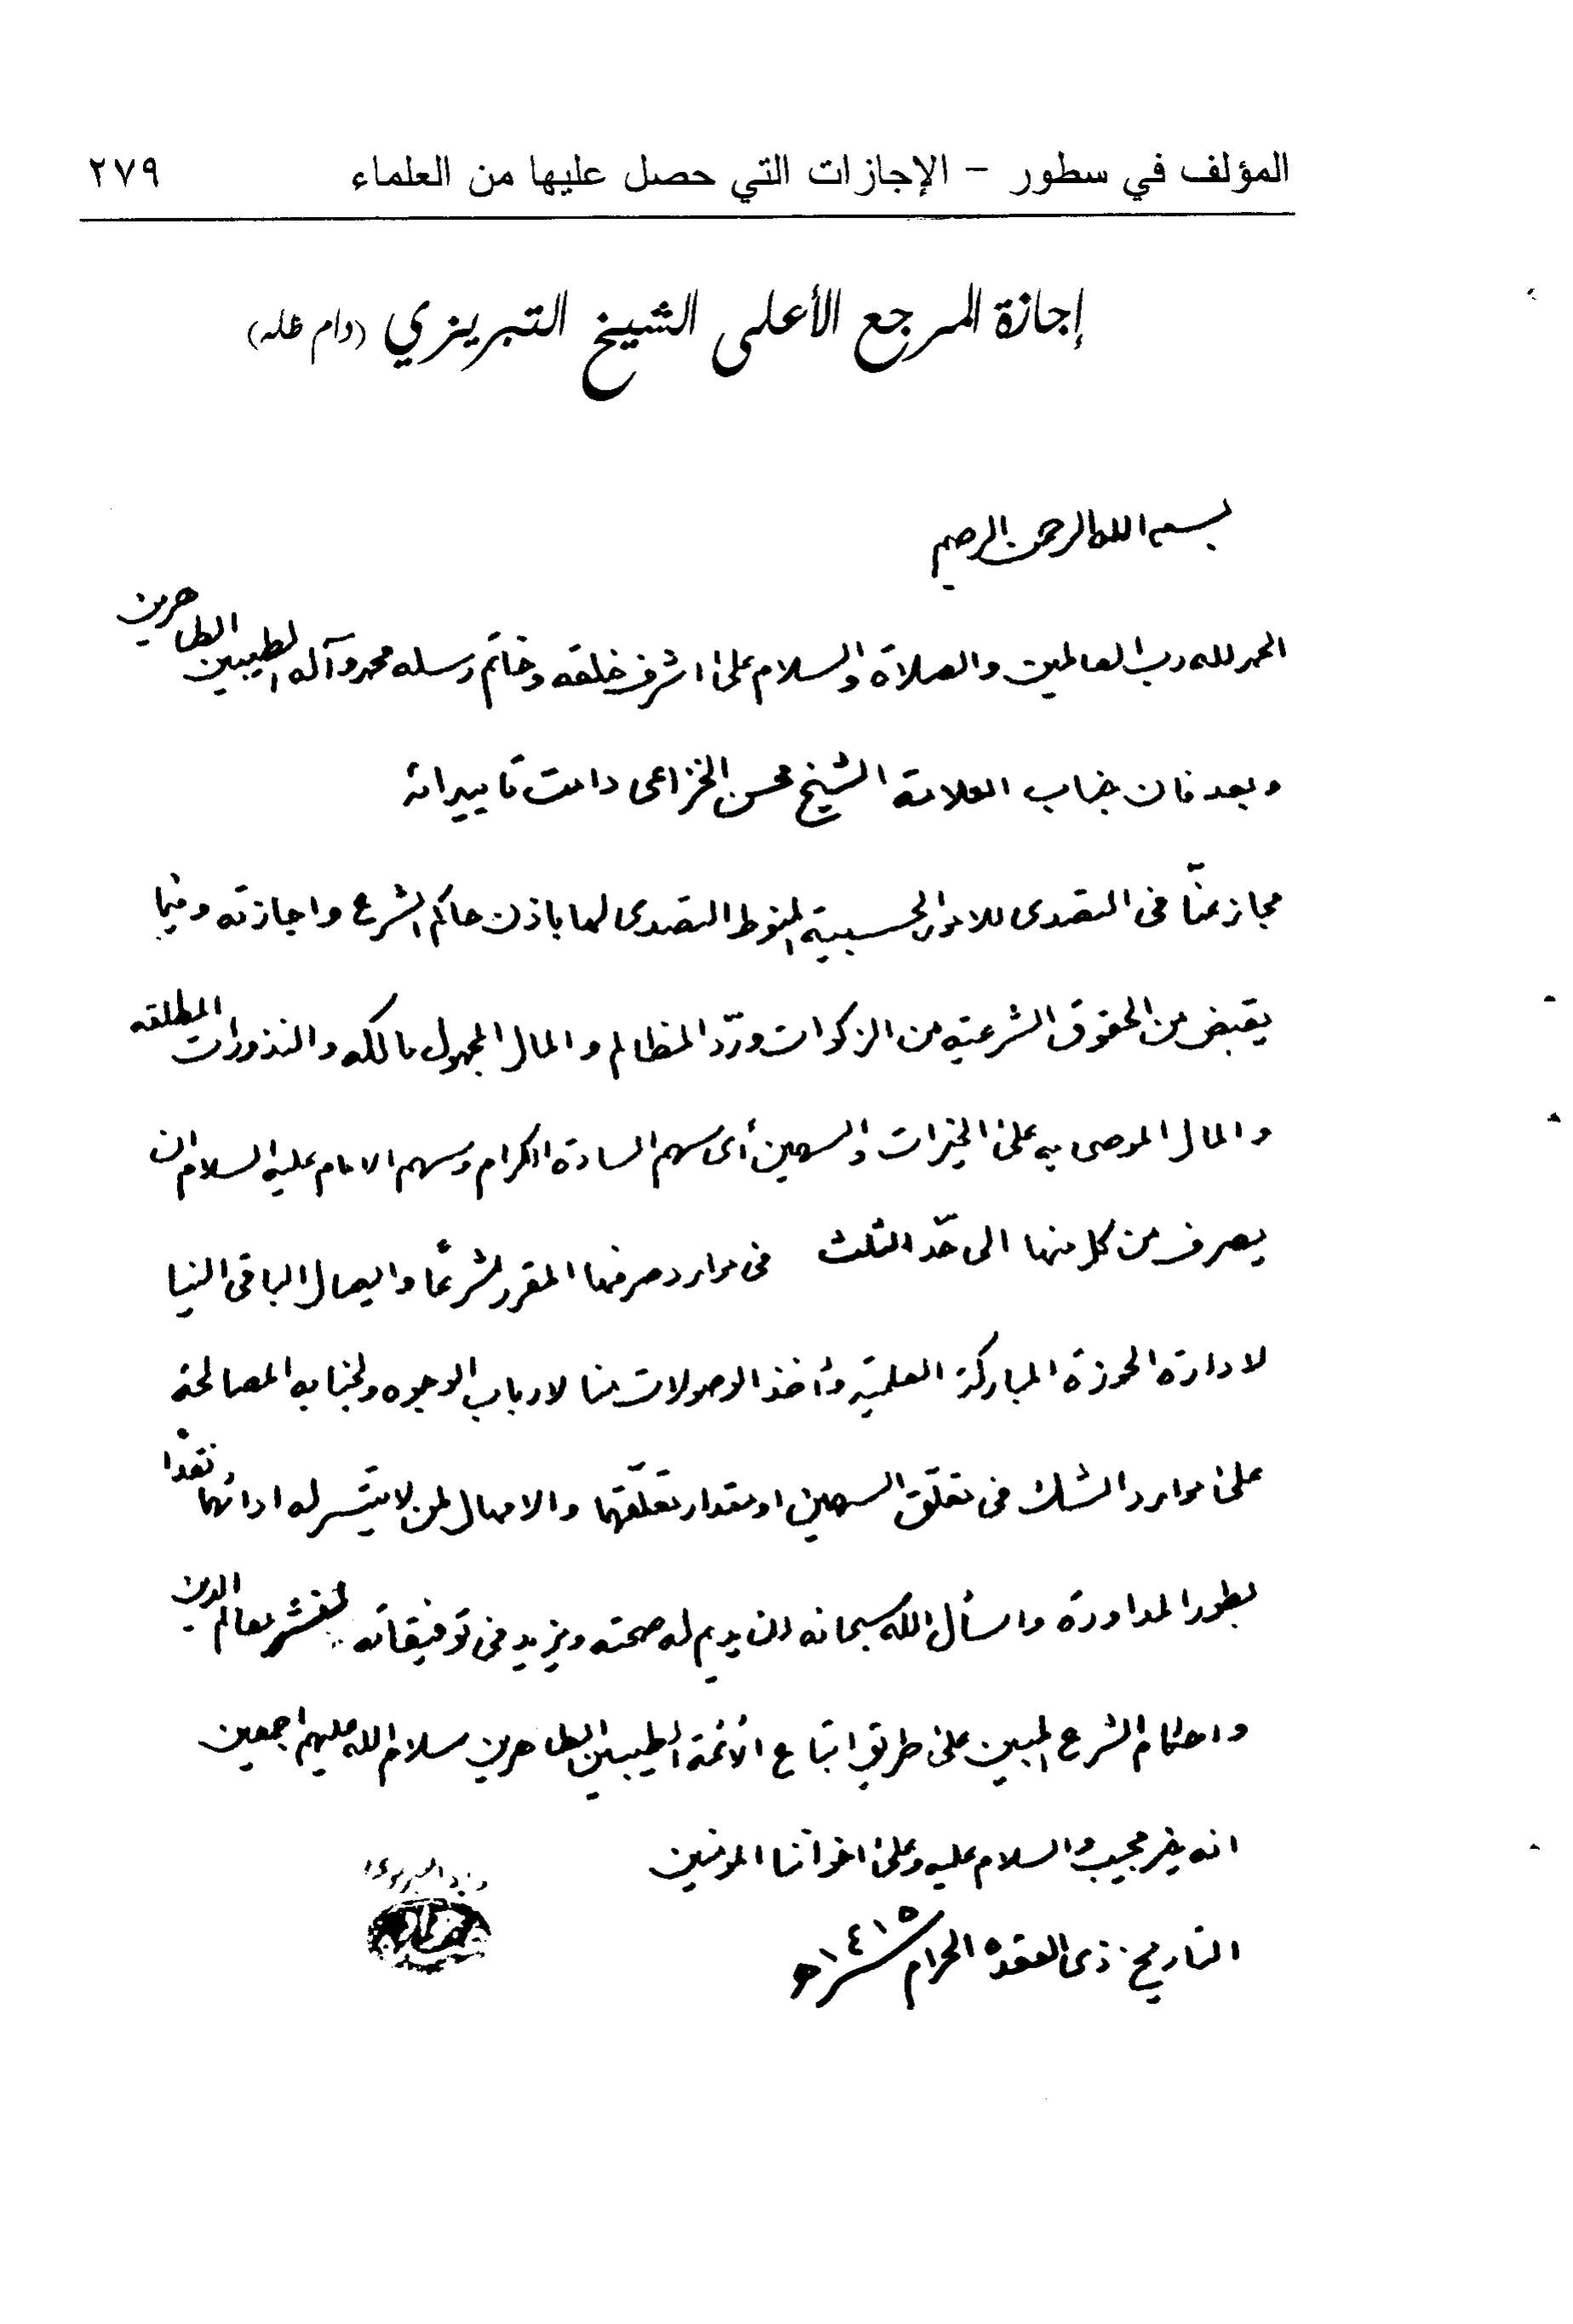 المؤلف في سطور – الإجازات التي حصل عليها من العلماء ٢٧٩
إجازة المرجع الأعلى الشيخ التبريزي (دام ظله)
بسم الله الرحمن الرحيم
الحمد لله رب العالمين والصلاة والسلام على اشرف خلقه وخاتم رسله محمد وآله الطيبين الطاهرين
وبعد فان جناب العلامة الشيخ محسن الخزاعى دامت تاييداته
مجاز عنّا فى التصدى للامور الحسبية المنوط التصدى لها باذن حاكم الشرع واجازته وفيما
يقبض من الحقوق الشرعيّه من الزكوات وردّ المظالم والمال المجهول مالكه والنذورات المطلقه
والمال الموصى به على الخيرات والسهمين أى سهم السادة الكرام وسهم الامام عليه السلام ان
يصرف من كل منها الى حدّ الثلث فى موارد صرفها المقرر شرعًا وايصال الباقى الينا
لادارة الحوزة المباركة العلميّه وأخذ الوصولات منا لارباب الوجوه ولجنابه المصالحة
على موارد الشك فى تعلّق السهمين او مقدار تعلّقهما والامهال لمن لا يتيّسر له ادائهما نقدًا
بطور المداورة واسأل الله سبحانه ان يديم له صحته ويزيد فى توفيقاته لنشر معالم الدين
واحكام الشرع المبين على طريق اتباع الأئمة الطيبين الطاهرين سلام الله عليهم اجمعين
انه خير مجيب والسلام عليه وعلى اخواننا المومنين
التاريخ: ذى العقده الحرام ١٤١٥